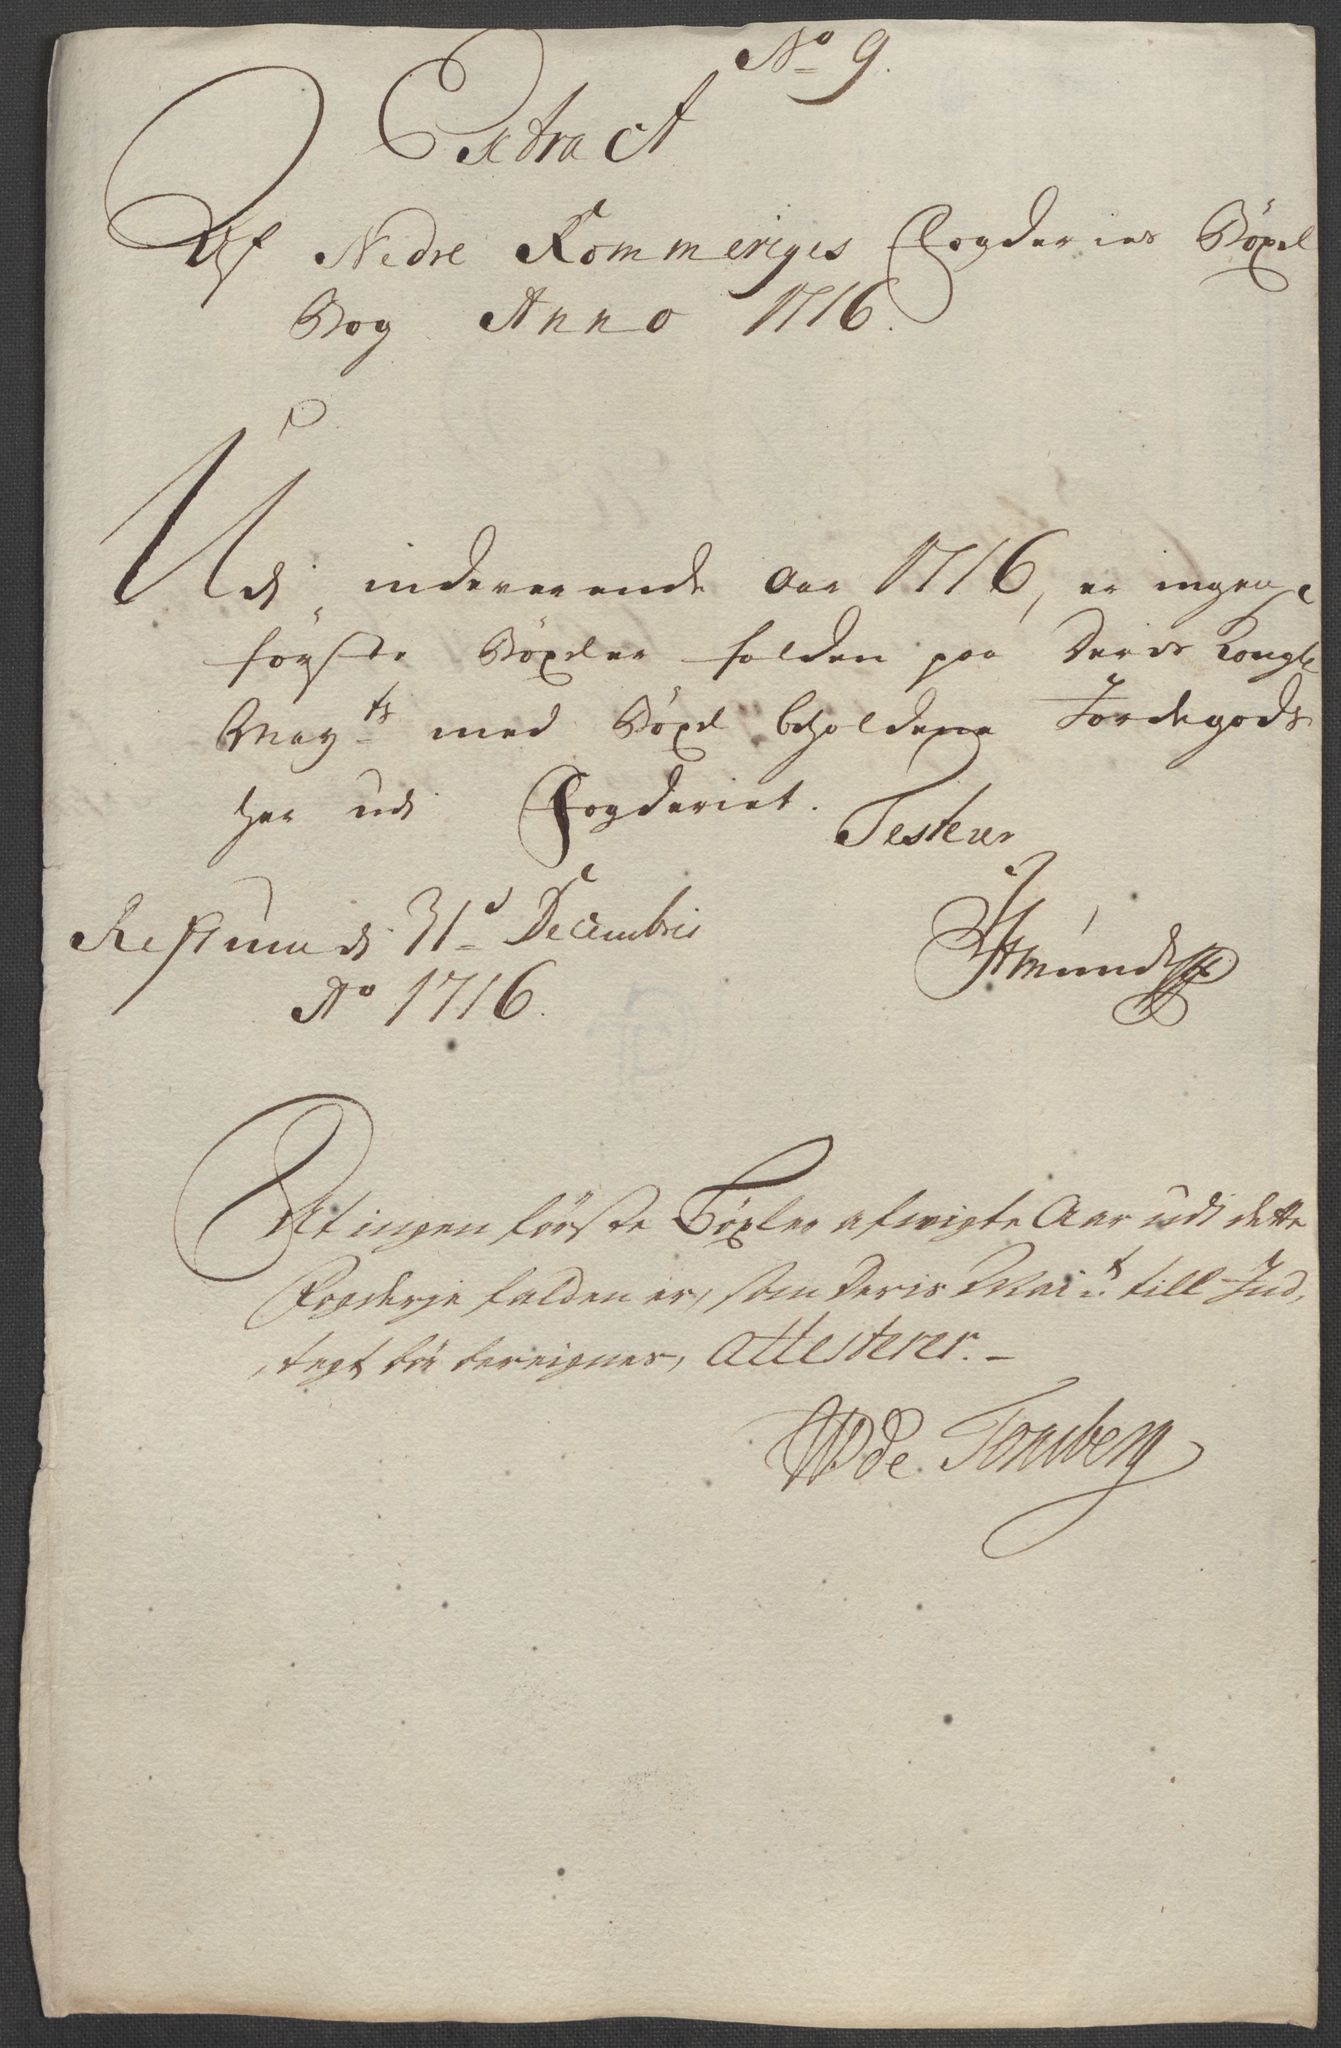 No 9.
Extract
Af Nedre Rommeriges Fogderies Böxel
Bog Anno 1716.
Udi indeverende Aar 1716, er ingen
förste Böxler falden paa Deris Kongl
May ts med Böxel beholdene Jordegods
her udi Fogderiet. Testerer
31 d Decembris
Ao 1716.
At ingen förste Böxler afvigte Aar udi dette
Fogderje falden er, som Deris Mai ts till Ind,
tegt bör bereignes, attesterer. -
de Tonsberg